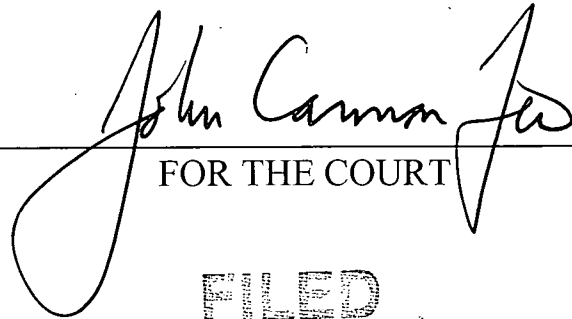 John Cannon Few
FOR THE COURT
FILED